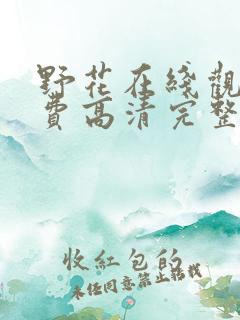 野花在綫觀
費高清完整
收紅包的
未经同意禁止转载